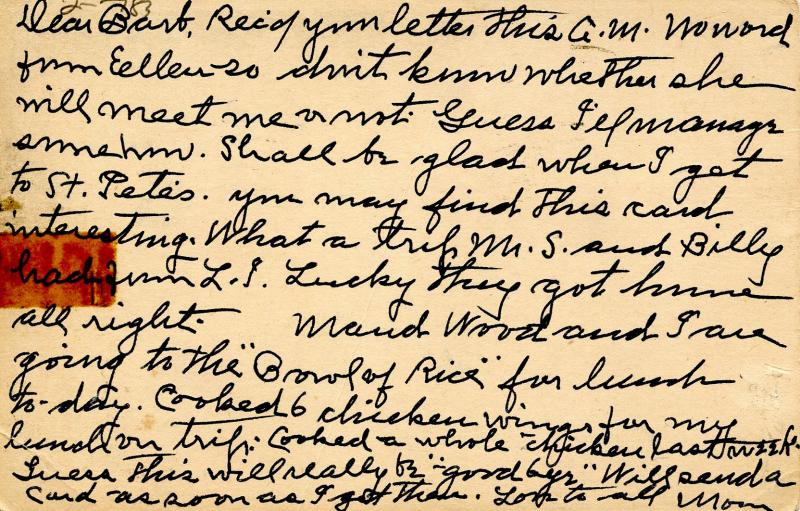 Dear Barb, Rec'd your letter this A.M. No word
from Eellen so don't know whether she
will meet me or not. Guess I'll manage
somehow. Shall be glad when I get
to St. Pete's. you may find this card
interesting. What a trip M. S. and Billy
had from L. I. Lucky they got home
all right. Maud Wood and I are
going to the "Bowl of Rice" for lunch
to-day. Cooked 6 chicken wings for my
lunch on trip. Cooked a whole chicken last week.
Guess this will really be "good bye" Will send a
card as soon as I get there. Love to all Mom